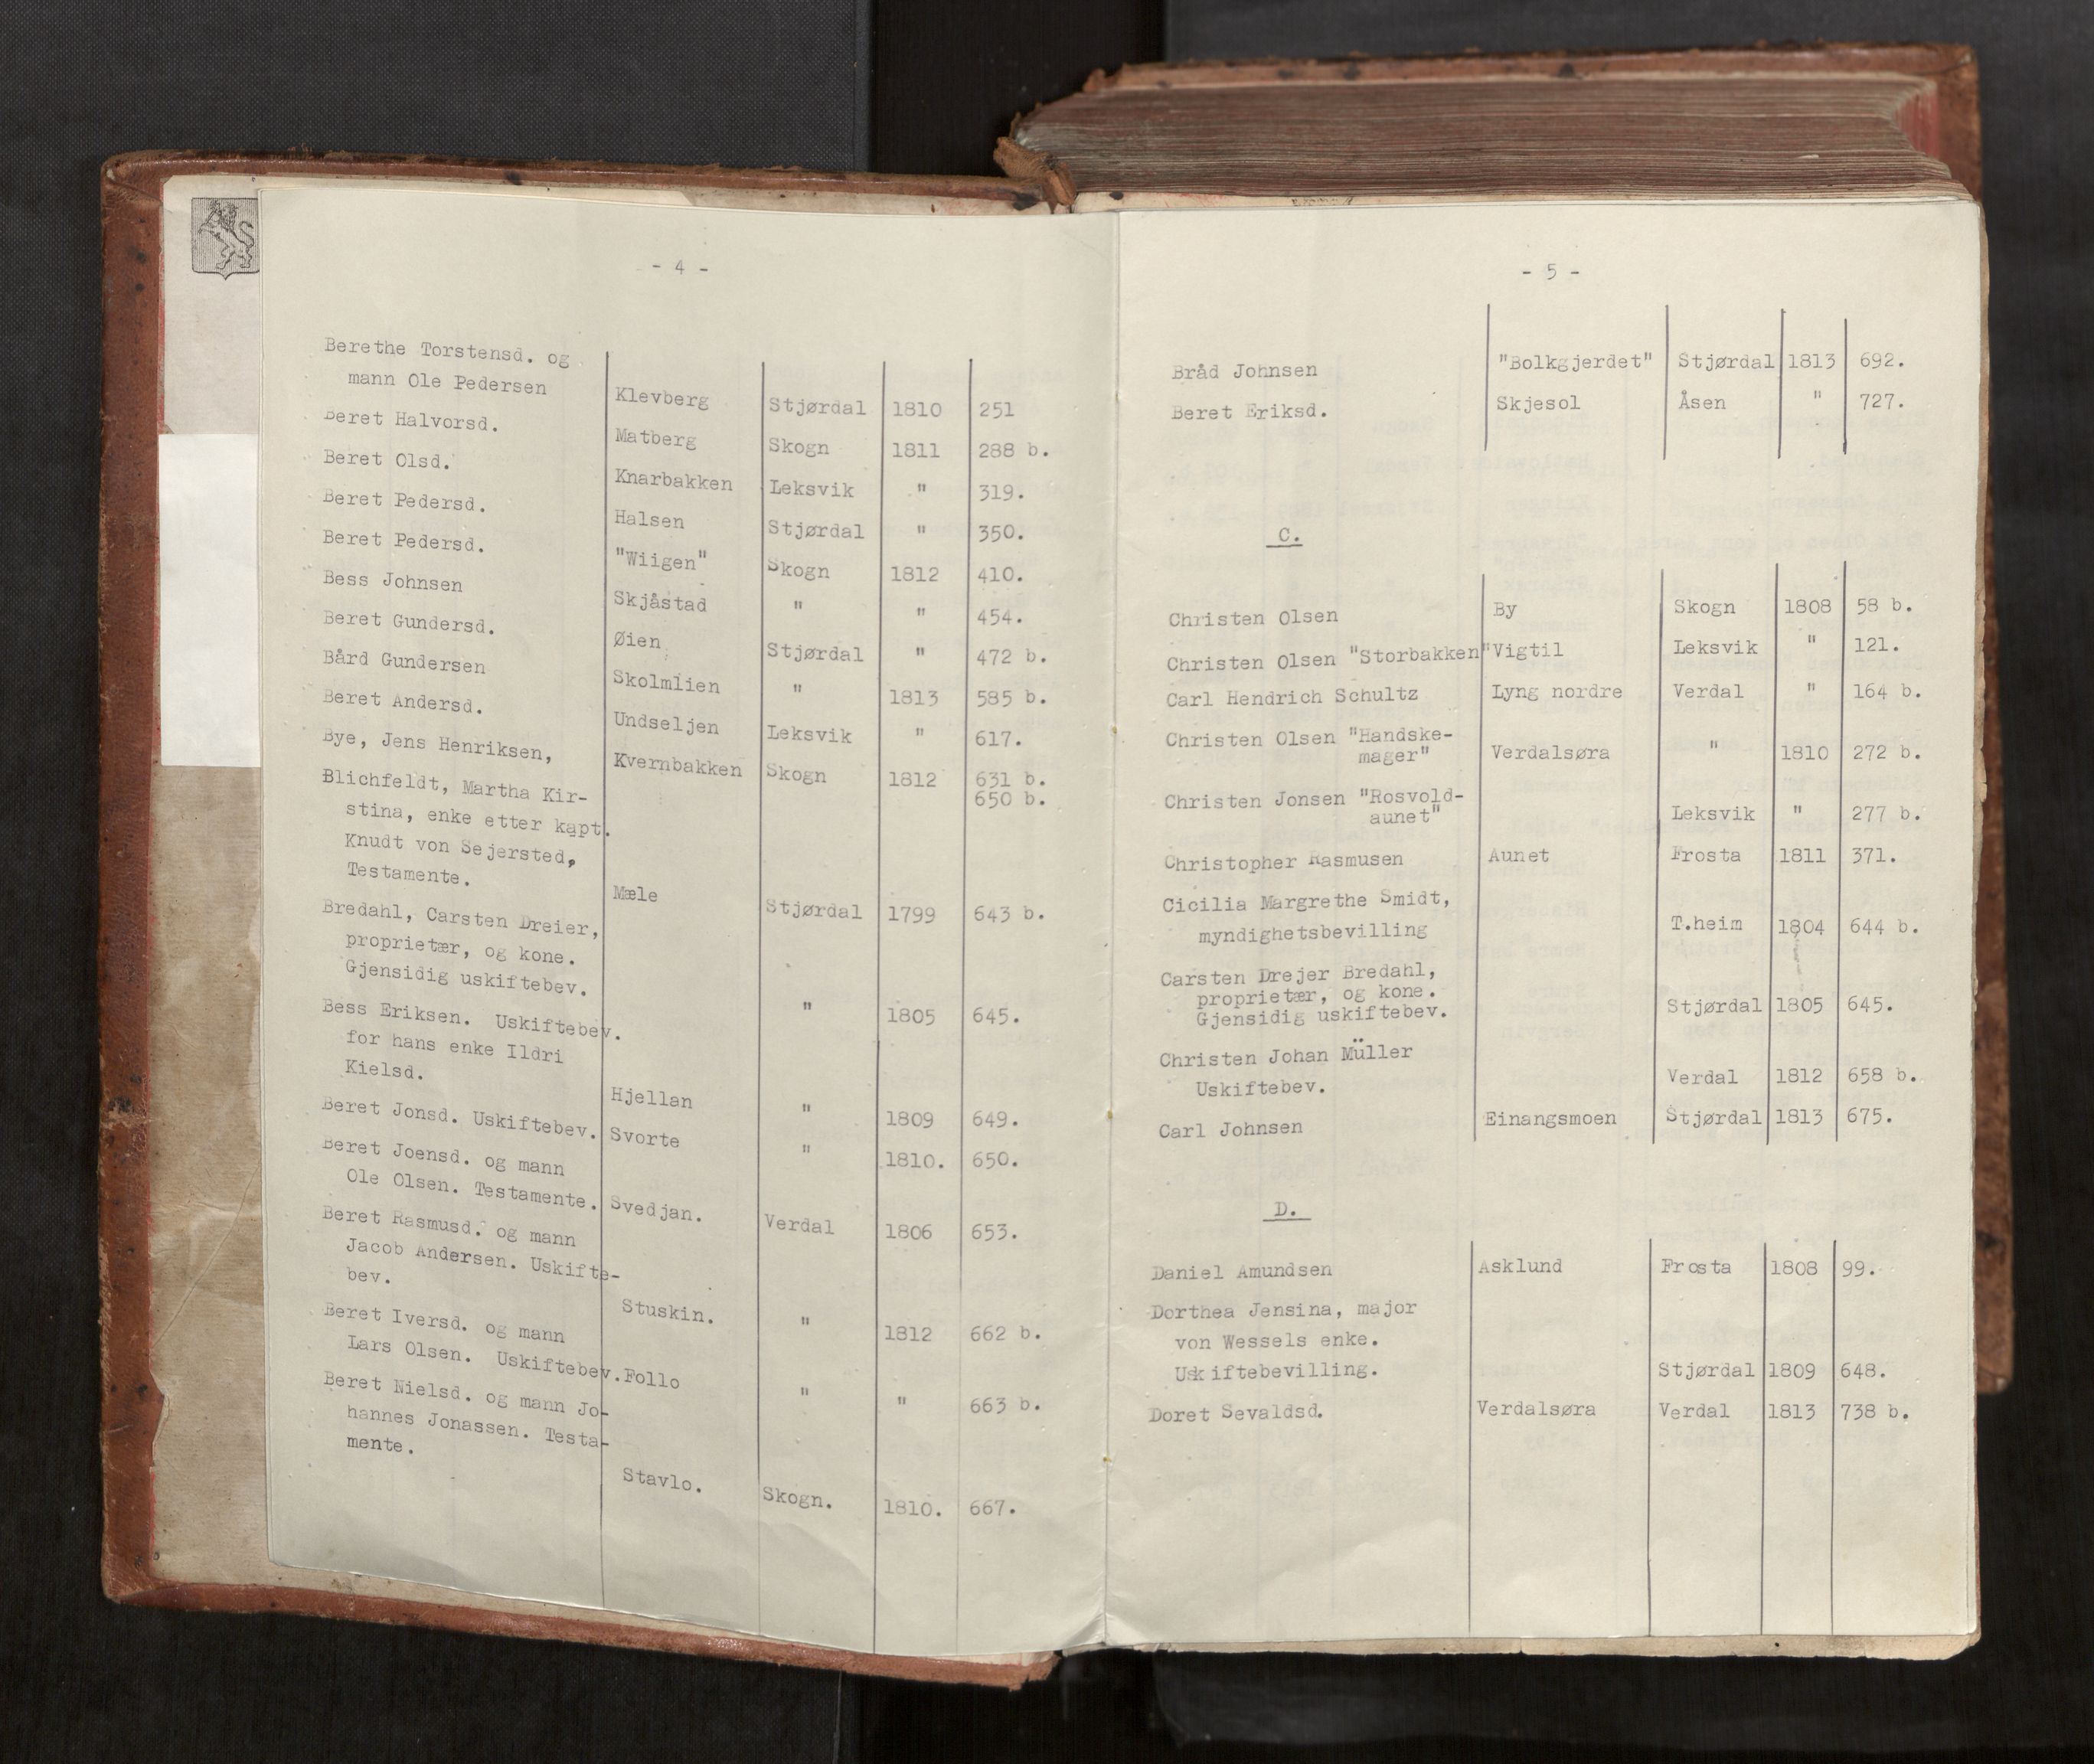 - 4 -
Berethe Torstensd. og
mann Ole Pedersen Klevberg Stjørdal 1810 251
Beret Halvorsd. Matberg Skogn 1811 288 b.
Beret Olsd. Knarbakken Leksvik " 319.
Beret Pedersd. Halsen Stjørdal " 350.
Beret Pedersd. "Wiigen" Skogn 1812 410.
Bess Johnsen Skjåstad " " 454.
Beret Gundersd. Øien Stjørdal " 472 b.
Bård Gundersen Skolmlien " 1813 585 b.
Beret Andersd. Undseljen Leksvik " 617.
Bye, Jens Henriksen, Kvernbakken Skogn 1812 631 b.
650 b.
Blichfeldt, Martha Kir-
stina, enke etter kapt.
Knudt von Sejersted,
Testamente. Mæle Stjørdal 1799 643 b.
Bredahl, Carsten Dreier,
proprietær, og kone.
Gjensidig uskiftebev. " 1805 645.
Bess Eriksen. Uskiftebev.
for hans enke Ildri
Kielsd. Hjellan " 1809 649.
Beret Jonsd. Uskiftebev. Svorte " 1810. 650.
Beret Joensd. og mann
Ole Olsen. Testamente. Svedjan. Verdal 1806 653.
Beret Rasmusd. og mann
Jacob Andersen. Uskifte-
bev. Stuskin. " 1812 662 b.
Beret Iversd. og mann
Lars Olsen. Uskiftebev. Follo " " 663 b.
Beret Nielsd. og mann Jo-
hannes Jonassen. Testa-
mente. Stavlo. Skogn. 1810. 667.
- 5 -
Bråd Johnsen "Bolkgjerdet" Stjørdal 1813 692.
Beret Eriksd. Skjesol Åsen " 727.
C.
Christen Olsen By Skogn 1808 58 b.
Christen Olsen "Storbakken" Vigtil Leksvik " 121.
Carl Hendrich Schultz Lyng nordre Verdal " 164 b.
Christen Olsen "Handske-
mager" Verdalsøra " 1810 272 b.
Christen Jonsen "Rosvold-
aunet" Leksvik " 277 b.
Christopher Rasmusen Aunet Frosta 1811 371.
Cicilia Margrethe Smidt,
myndighetsbevilling T.heim 1804 644 b.
Carsten Drejer Bredahl,
proprietær, og kone.
Gjensidig uskiftebev. Stjørdal 1805 645.
Christen Johan Müller
Uskiftebev. Verdal 1812 658 b.
Carl Johnsen Einangsmoen Stjørdal 1813 675.
D.
Daniel Amundsen Asklund Frosta 1808 99.
Dorthea Jensina, major
von Wessels enke.
Uskiftebevilling. Stjørdal 1809 648.
Doret Sevaldsd. Verdalsøra Verdal 1813 738 b.